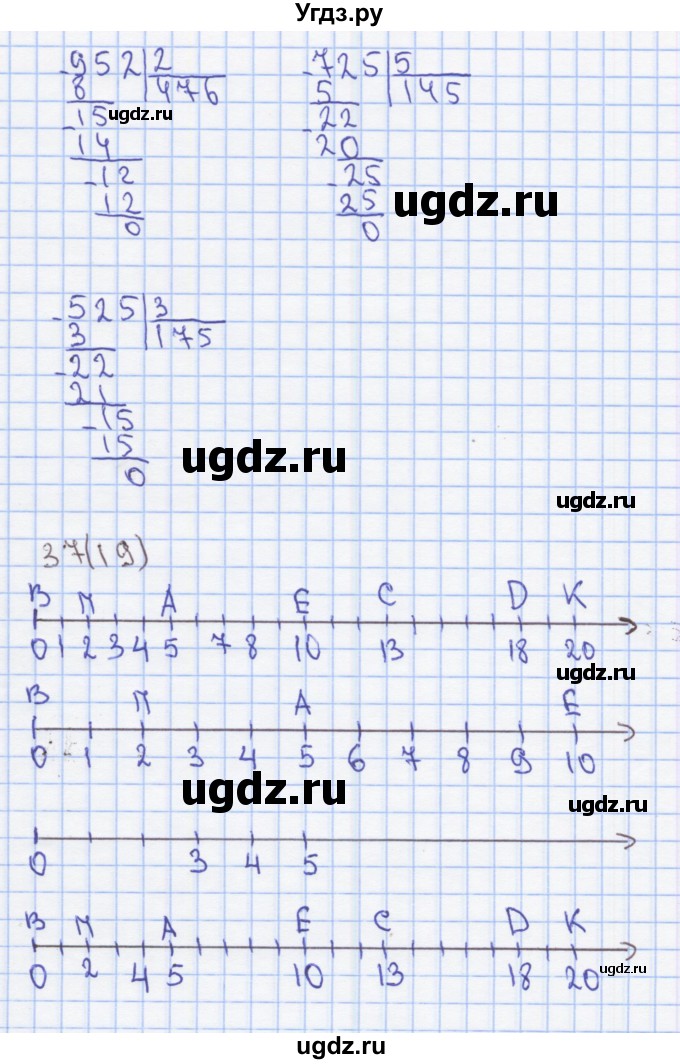 Угдз.ру
952 2 -725 5
8 476 5 145
-15 ugdz.ru -22
14 20
-12 -25
12 25 ugdz.ru
0 0
-525 3
3 175
-22
21
-15
15 ugdz.ru
0
ugdz.ru
37(19)
В М А Е С D К
0 1 2 3 4 5 7 8 10 13 18 20
ugdz.ru
В М А Е
0 1 2 3 4 5 6 7 8 9 10
ugdz.ru
ugdz.ru
0 3 4 5
В М А Е С D К
0 2 4 5 10 13 18 20 ugdz.ru
ugdz.ru